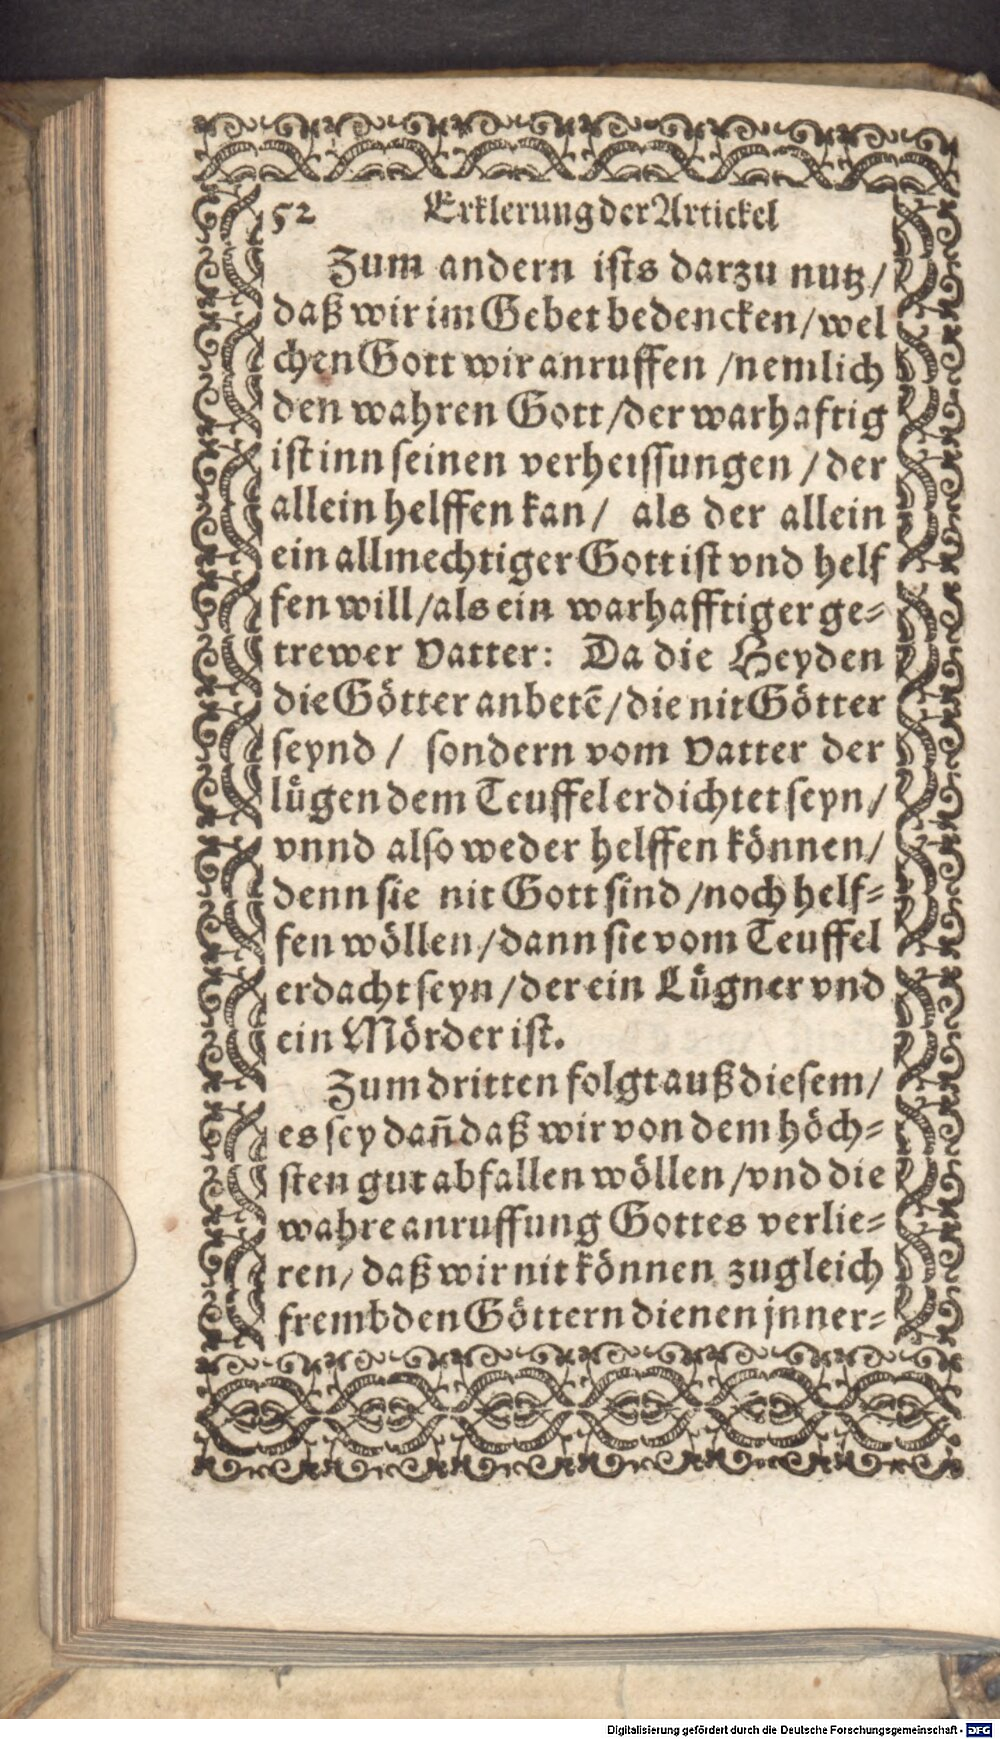 52 Erklerung der Artickel
Zum andern ists darzu nutz /
daß wir im Gebet bedencken / wel
chen Gott wir anruffen / nemlich
den wahren Gott / der warhaftig
ist inn seinen verheissungen / der
allein helffen kan / als der allein
ein allmechtiger Gott ist vnd helf
fen will / als ein warhafftiger ge-
trewer Vatter: Da die Heyden
die Götter anbetẽ / die nit Götter
seynd / sondern vom Vatter der
lügen dem Teuffel erdichtet seyn /
vnnd also weder helffen können /
denn sie nit Gott sind / noch helf-
fen wöllen / dann sie vom Teuffel
erdacht seyn / der ein Lügner vnd
ein Mörder ist.
Zum dritten folgt auß diesem /
es sey dañ daß wir von dem höch-
sten gut abfallen wöllen / vnd die
wahre anruffung Gottes verlie-
ren / daß wir nit können zugleich
frembden Göttern dienen jnner-
Digitalisierung gefördert durch die Deutsche Forschungsgemeinschaft - DFG